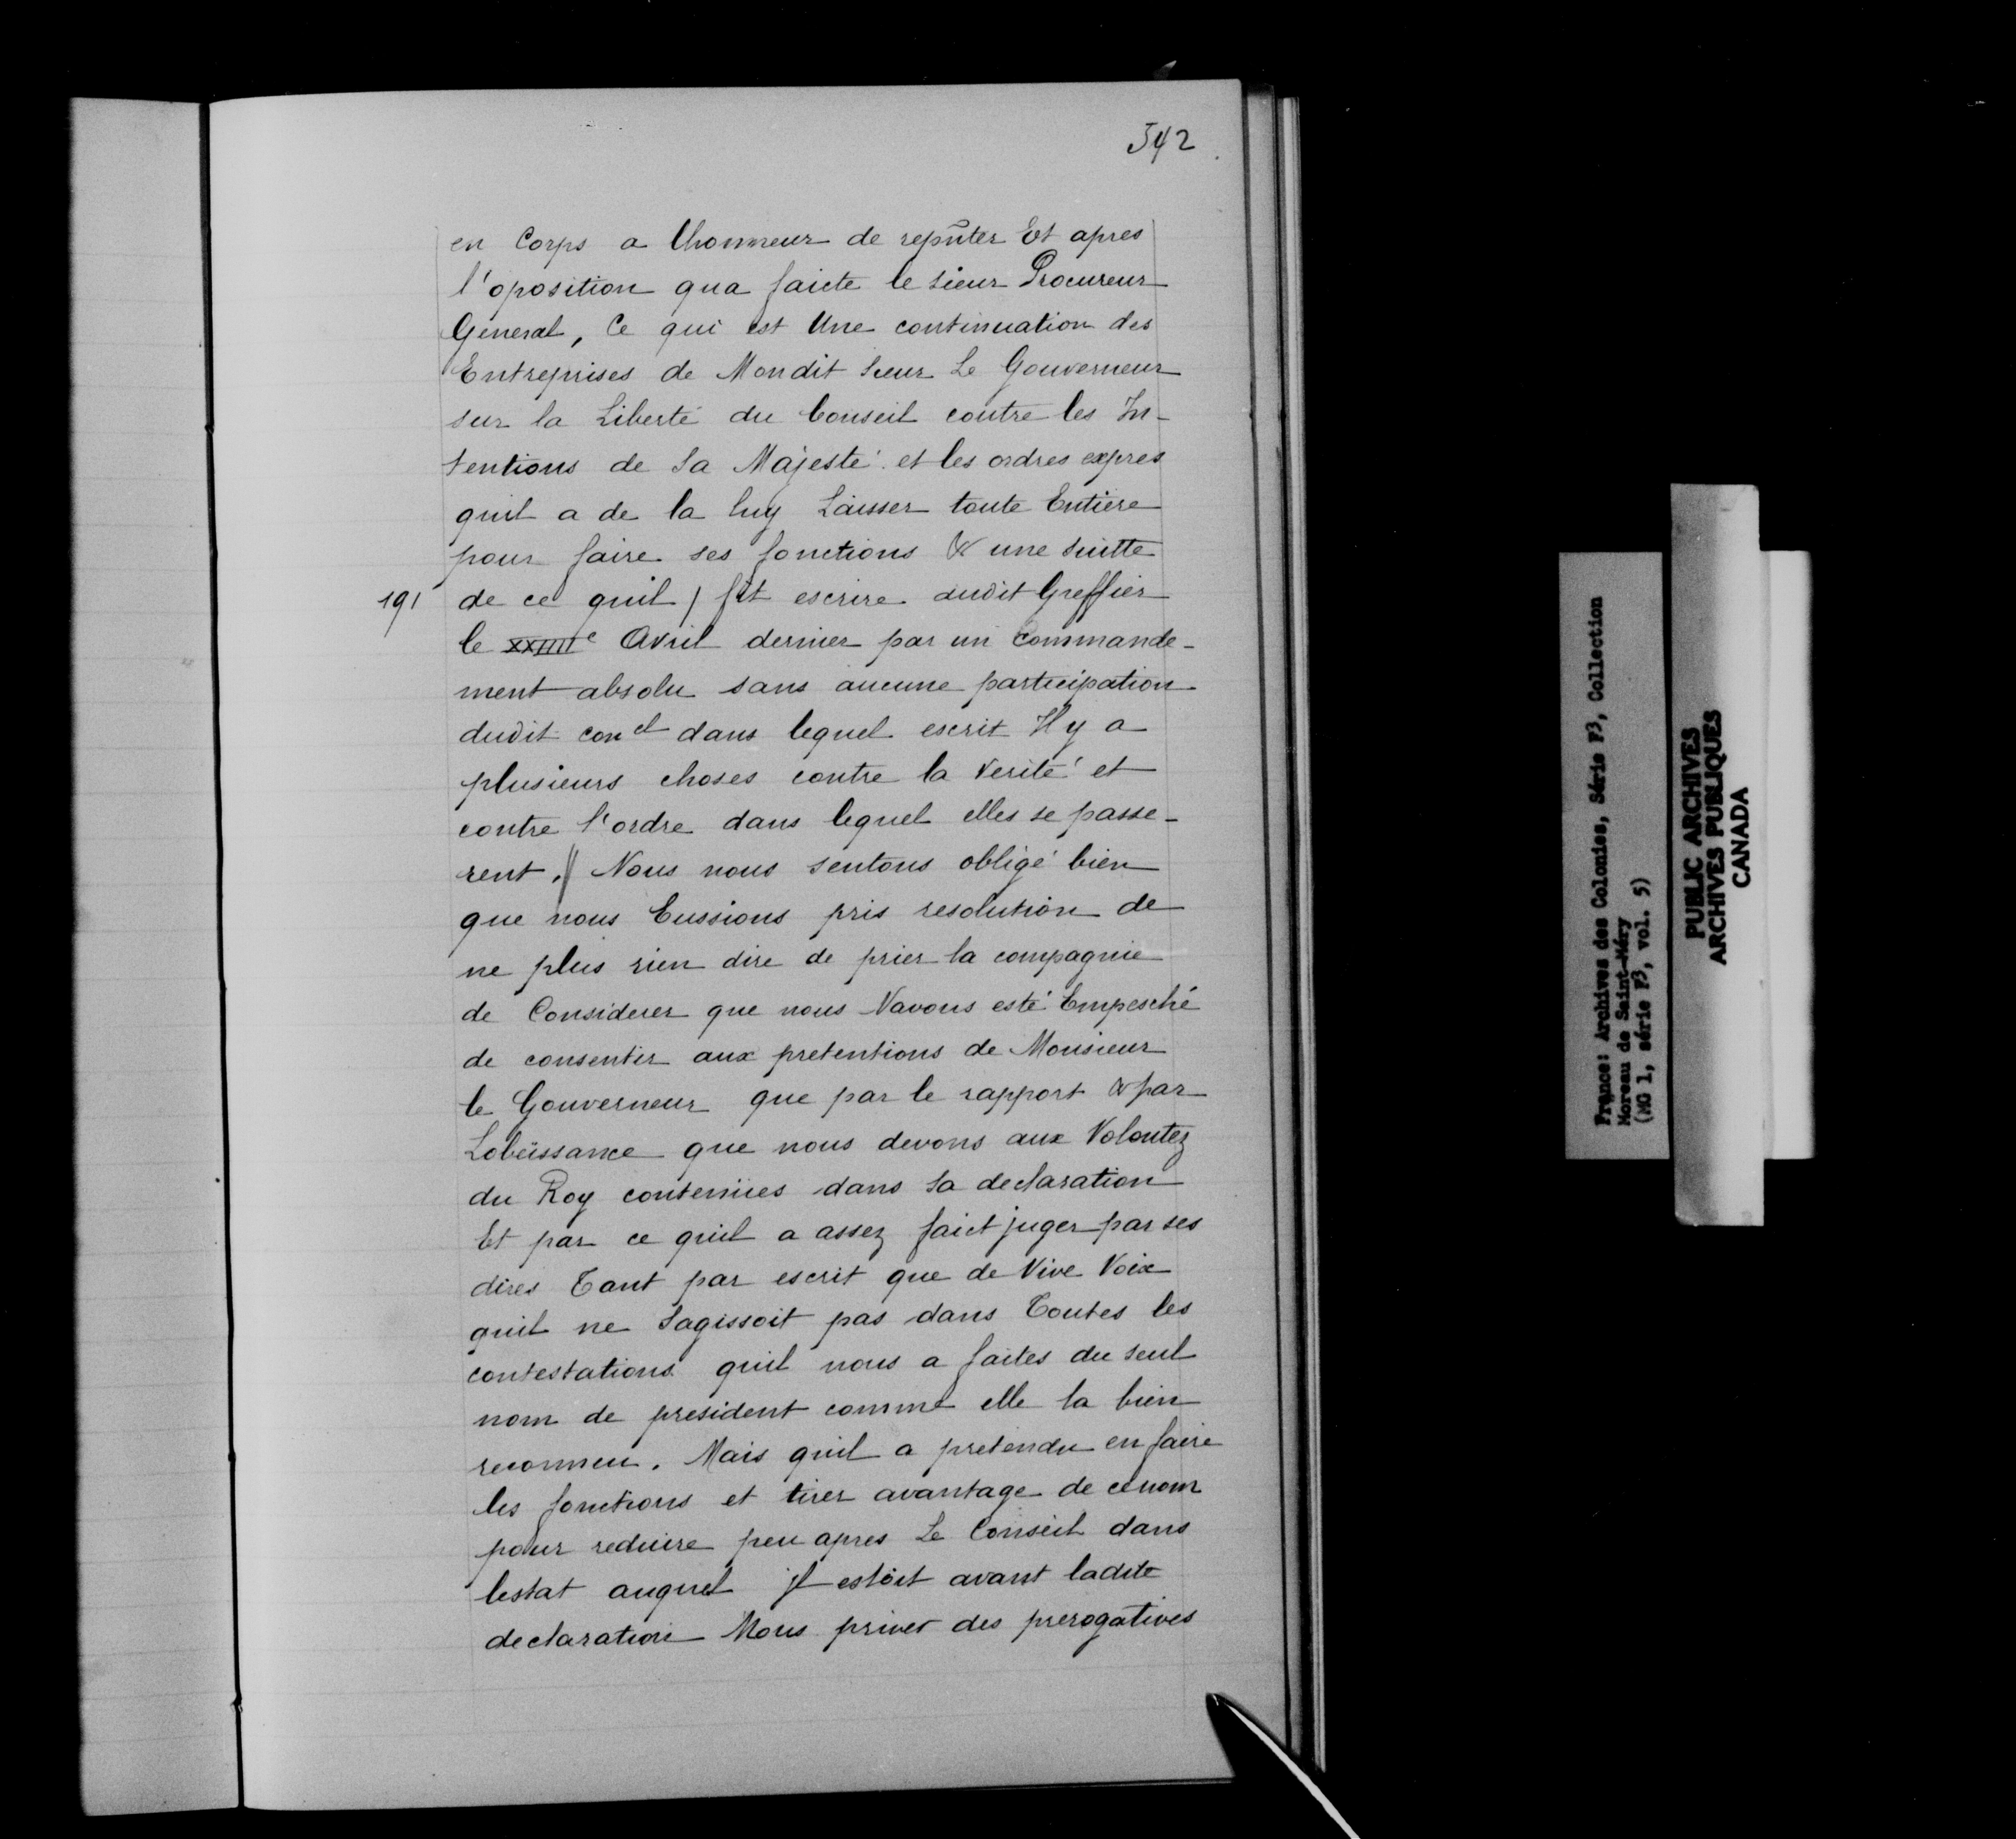 542
en Corps a lhonneur de repñter Et apres
l'oposition qua faicte le sieur Procureur
General, Ce qui est Une continuation des
Entreprises de Mondit Sieur Le Gouverneur
sur la Liberté du Conseil contre les In-
tentions de Sa Majesté et les ordres expres
quil a de la luy Laisser toute Entiere
pour faire ses fonctions & une suitte
191 de ce quil / fit escrire audit Greffier
le xxiiiie Avril dernier par un Commande-
ment absolu sans aucune participation
dudit conel dans lequel escrit Il y a
plusieurs choses contre la verité et
contre l'ordre dans lequel elles se passe-
rent. // Nous nous sentons obligé bien
que nous Eussions pris resolution de
ne plus rien dire de prier la compagnie
de Considerer que nous Navons esté Empesché
de consentir aux pretentions de Monsieur
le Gouverneur que par le rapport & par
Lobëissance que nous devons aux Volontez
du Roy contenües dans sa declaration
Et par ce quil a assez faict juger par ses
dires Tant par escrit que de Vive Voix
quil ne Sagissoit pas dans Toutes les
contestations quil nous a faites du seul
nom de president comme elle la bien
reconneu. Mais quil a pretendu en faire
les fonctions et tirer avantage de ce nom
pour reduire peu apres Le Conseil dans
lestat auquel jl estoit avant ladite
declaration Nous priver des prerogatives
France: Archives des Colonies, Série F3, Collection
Moreau de Saint-Méry
(MG 1, série F3, vol. 5)
PUBLIC ARCHIVES
ARCHIVES PUBLIQUES
CANADA